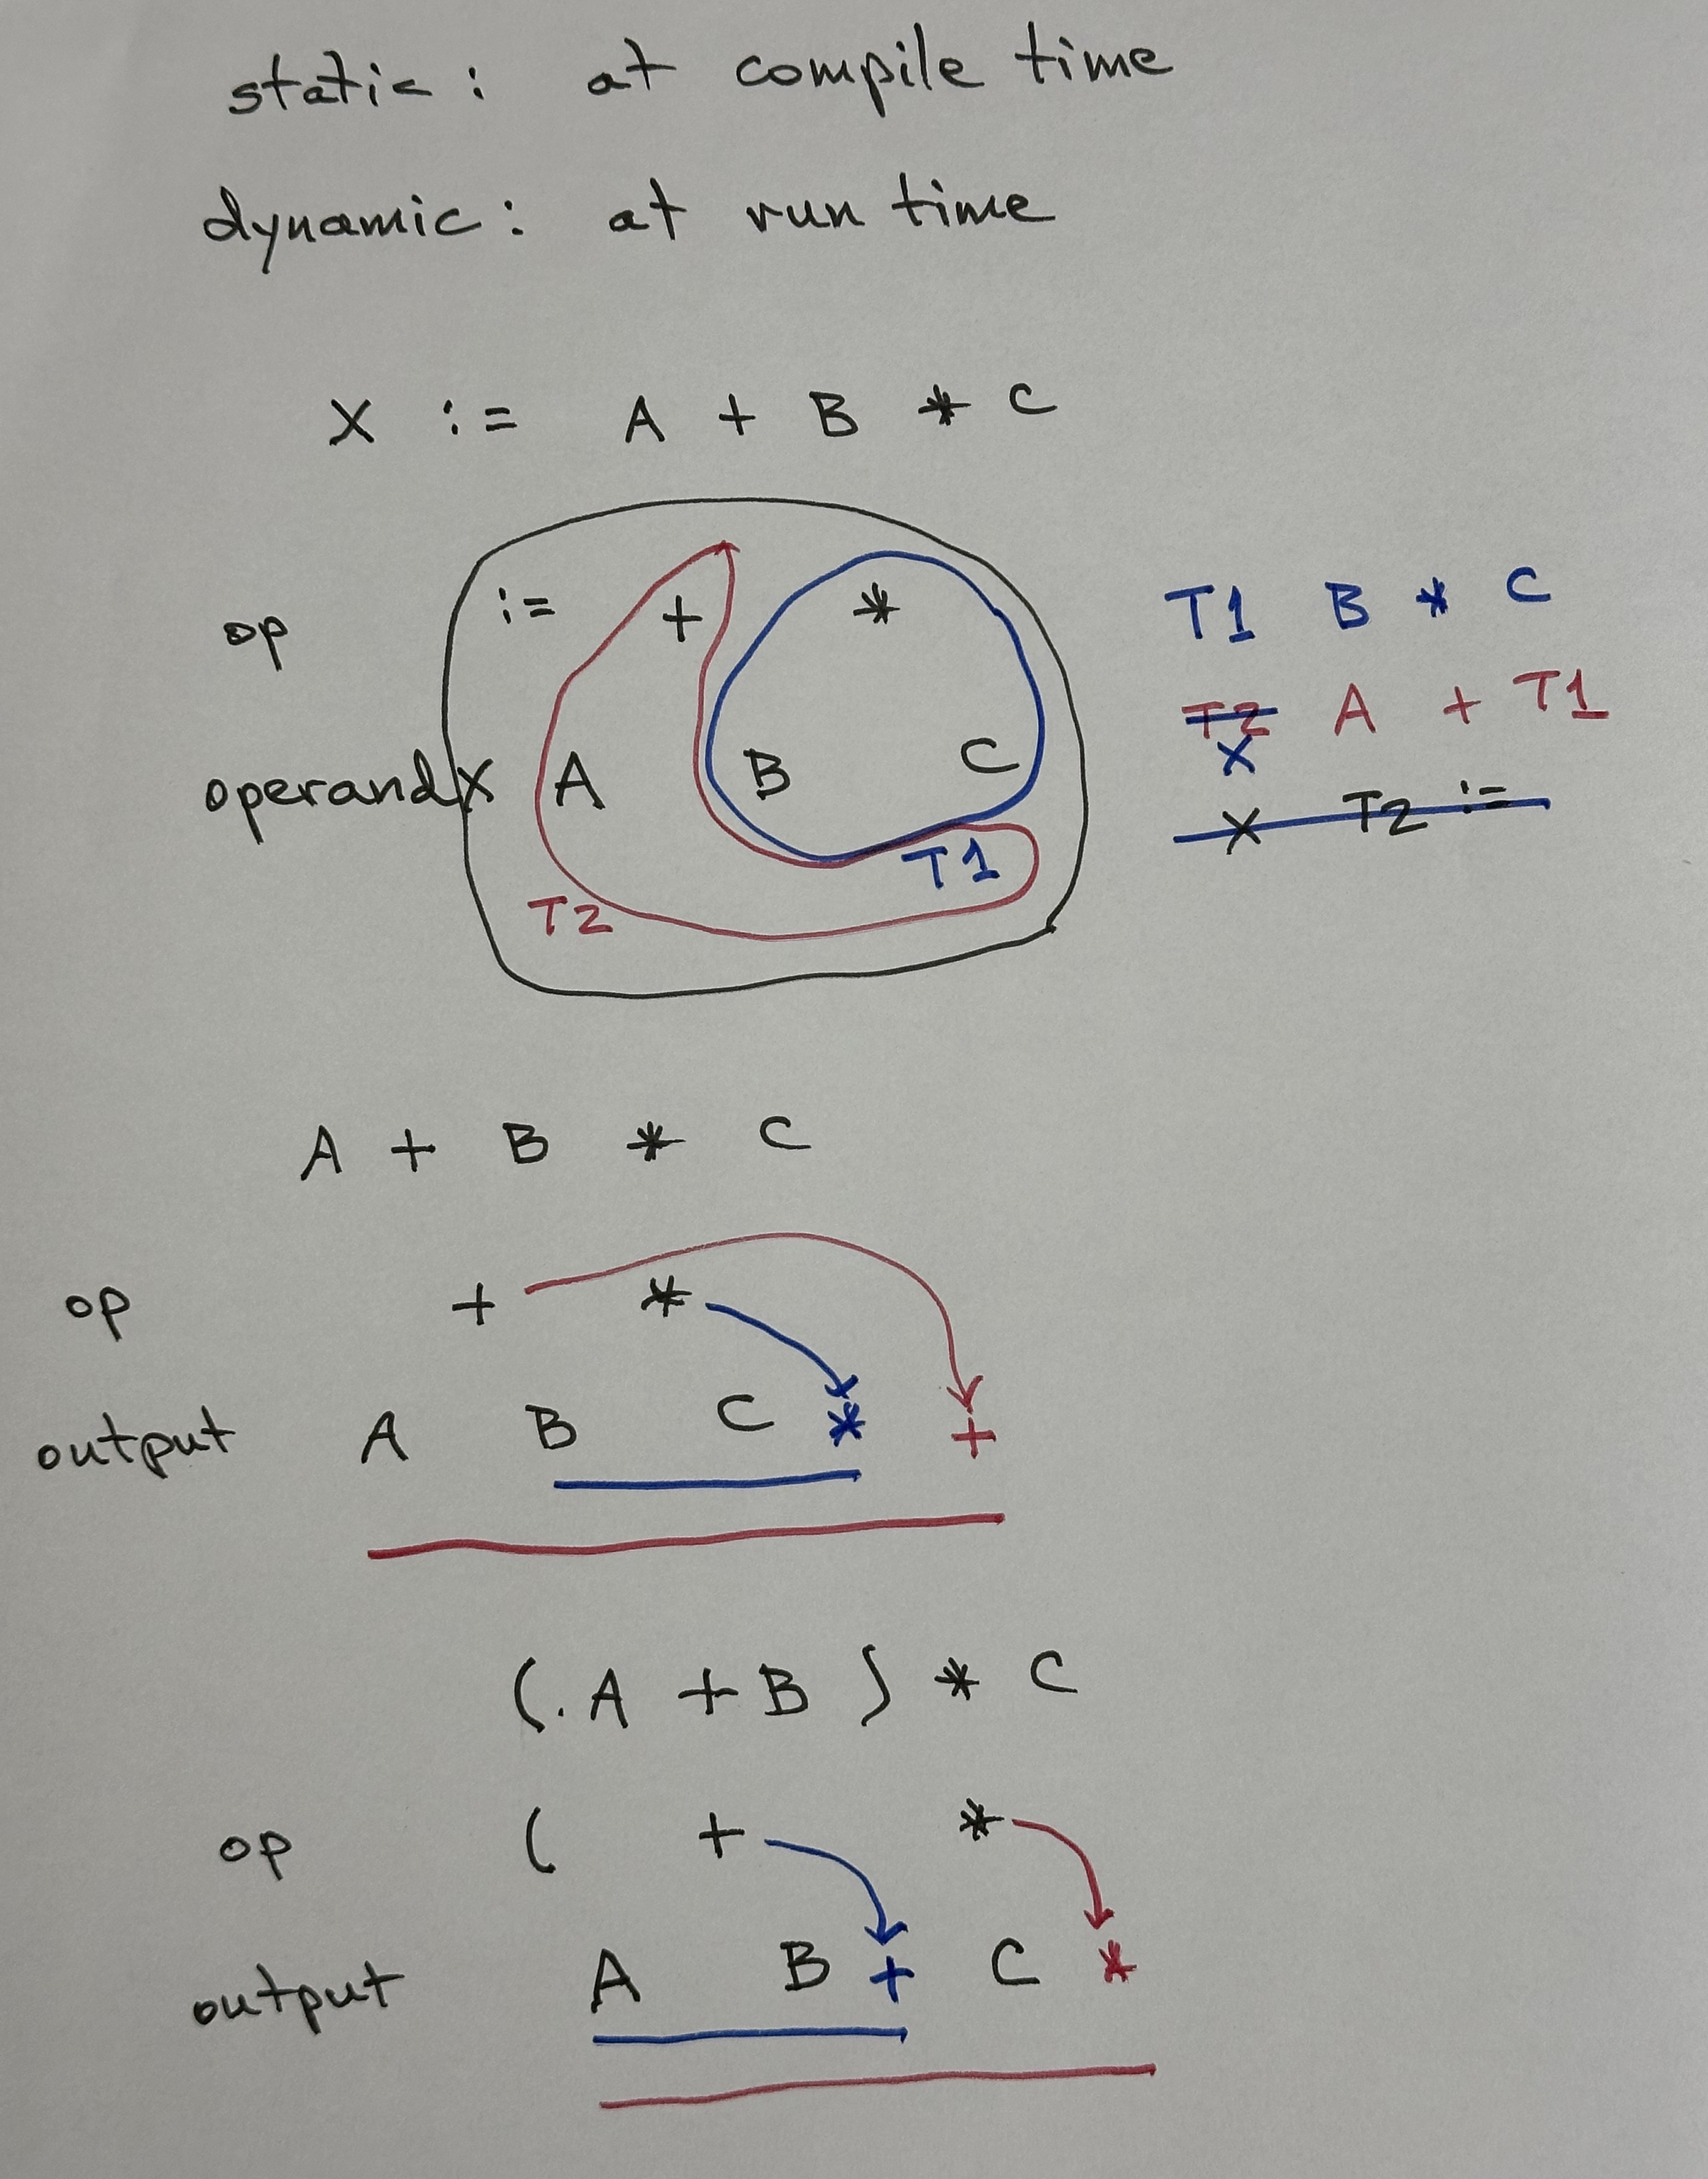 static: at compile time
dynamic: at run time
X := A + B * C
op := + *
T1 B * C
T2 A + T1
X
operand X A B C
X T2 :=
T1
T2
A + B * C
op + *
output A B C * +
(. A + B ) * C
op ( + *
output A B + C *